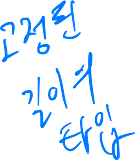 고정된
길이의
타입